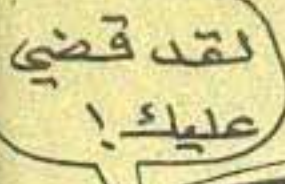 لقد قضي
عليك !